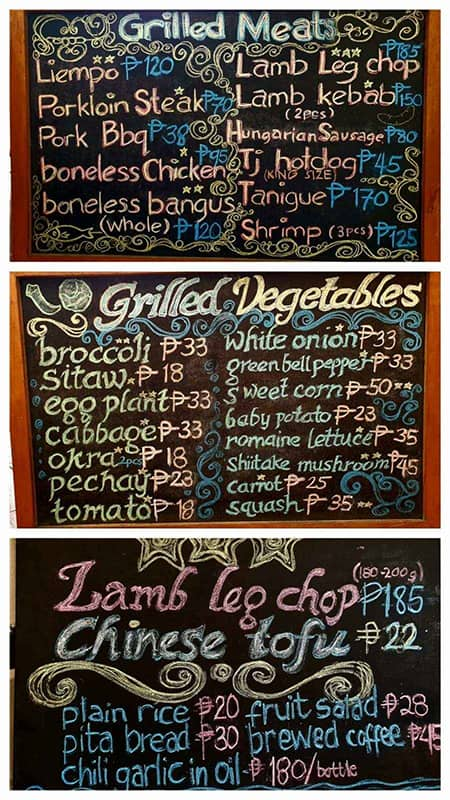 Grilled Meats
Liempo ₱120
Porkloin Steak ₱70
Pork Bbq ₱38
boneless Chicken ₱95
boneless bangus
(whole) ₱120
Lamb Leg chop ₱185
Lamb kebab ₱150
(2pcs)
Hungarian Sausage ₱80
Tj hotdog ₱45
(KING SIZE)
Tanigue ₱170
Shrimp (3pcs) ₱125
Grilled Vegetables
broccoli ₱33
sitaw ₱18
egg plant ₱33
cabbage ₱33
okra 2pcs ₱18
pechay ₱23
tomato ₱18
white onion ₱33
green bell pepper ₱33
sweet corn ₱50
baby potato ₱23
romaine lettuce ₱35
shiitake mushroom ₱45
carrot ₱25
squash ₱35
(180-200g)
Lamb leg chop ₱185
Chinese tofu ₱22
plain rice ₱20 fruit salad ₱28
pita bread ₱30 brewed coffee ₱45
chili garlic in oil - ₱180/bottle